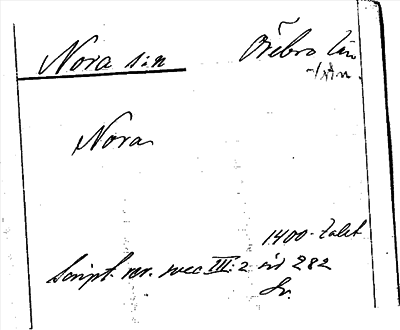 Nora s:n Örebro län
Nora
1400-talet
Script. rer. svec III:2 sid 282